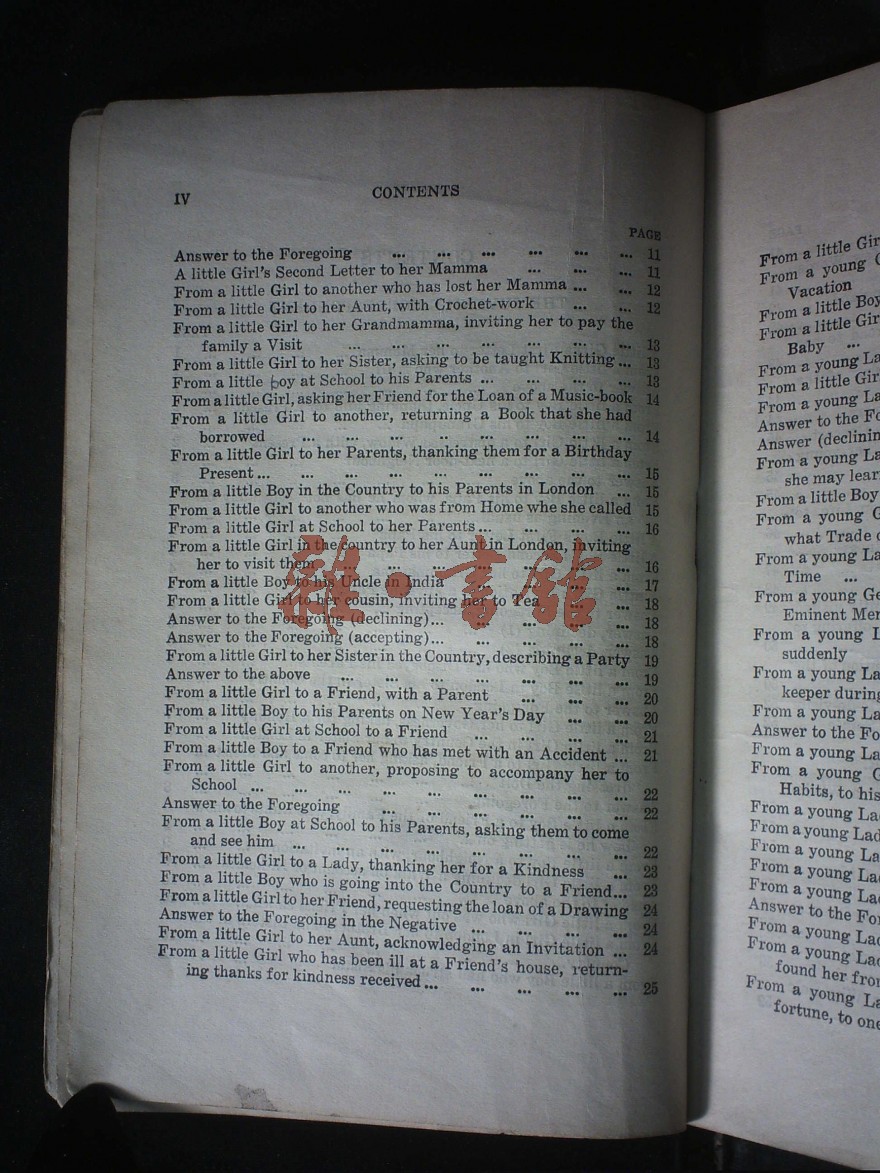 IV
CONTENTS
PAGE
Answer to the Foregoing ... ... ... ... ... ... 11
A little Girl's Second Letter to her Mamma ... ... ... 11
From a little Girl to another who has lost her Mamma ... ... 12
From a little Girl to her Aunt, with Crochet-work ... ... 12
From a little Girl to her Grandmamma, inviting her to pay the
family a Visit ... ... ... ... ... ... ... 13
From a little Girl to her Sister, asking to be taught Knitting ... 13
From a little boy at School to his Parents ... ... ... ... 13
From a little Girl, asking her Friend for the Loan of a Music-book 14
From a little Girl to another, returning a Book that she had
borrowed ... ... ... .. ... ... ... ... 14
From a little Girl to her Parents, thanking them for a Birthday
Present ... ... ... ... ... ... ... ... ... 15
From a little Boy in the Country to his Parents in London ... 15
From a little Girl to another who was from Home whe she called 15
From a little Girl at School to her Parents ... ... ... ... 16
From a little Girl in the country to her Aunt in London, inviting
her to visit them ... ... ... ... ... ... ... 16
From a little Boy to his Uncle in India ... ... ... 17
From a little Girl to her cousin, inviting her to Tea ... ... 18
Answer to the Foregoing (declining) ... ... ... ... ... 18
Answer to the Foregoing (accepting) ... ... ... ... ... 18
From a little Girl to her Sister in the Country, describing a Party 19
Answer to the above ... ... ... ... ... ... ... 19
From a little Girl to a Friend, with a Parent ... ... ... 20
From a little Boy to his Parents on New Year's Day ... ... 20
From a little Girl at School to a Friend ... ... ... ... 21
From a little Boy to a Friend who has met with an Accident ... 21
From a little Girl to another, proposing to accompany her to
School ... ... ... ... ... ... ... ... ... 22
Answer to the Foregoing ... ... ... ... ... ... 22
From a little Boy at School to his Parents, asking them to come
and see him ... ... ... ... ... ... ... ... 22
From a little Girl to a Lady, thanking her for a Kindness ... 23
From a little Boy who is going into the Country to a Friend ... 23
From a little Girl to her Friend, requesting the loan of a Drawing 24
Answer to the Foregoing in the Negative ... ... ... ... 24
From a little Girl to her Aunt, acknowledging an Invitation ... 24
From a little Girl who has been ill at a Friend's house, return-
ing thanks for kindness received ... ... ... ... ... 25
雜·書館
From a little Gir
From a young G
Vacation
From a little Boy
From a little Gir
Baby ...
From a young La
From a little Gir
From a young La
Answer to the Fo
Answer (declinin
From a young La
she may lear
From a little Boy
From a young G
what Trade o
From a young La
Time ...
From a young Ge
Eminent Mer
From a young L
suddenly
From a young La
keeper during
From a young La
Answer to the Fo
From a young La
From a young G
Habits, to his
From a young Lad
From a young Lad
From a young La
From a young Lad
From a young Lad
Answer to the For
From a young Lad
From a young Lad
found her from
From a young La
fortune, to one